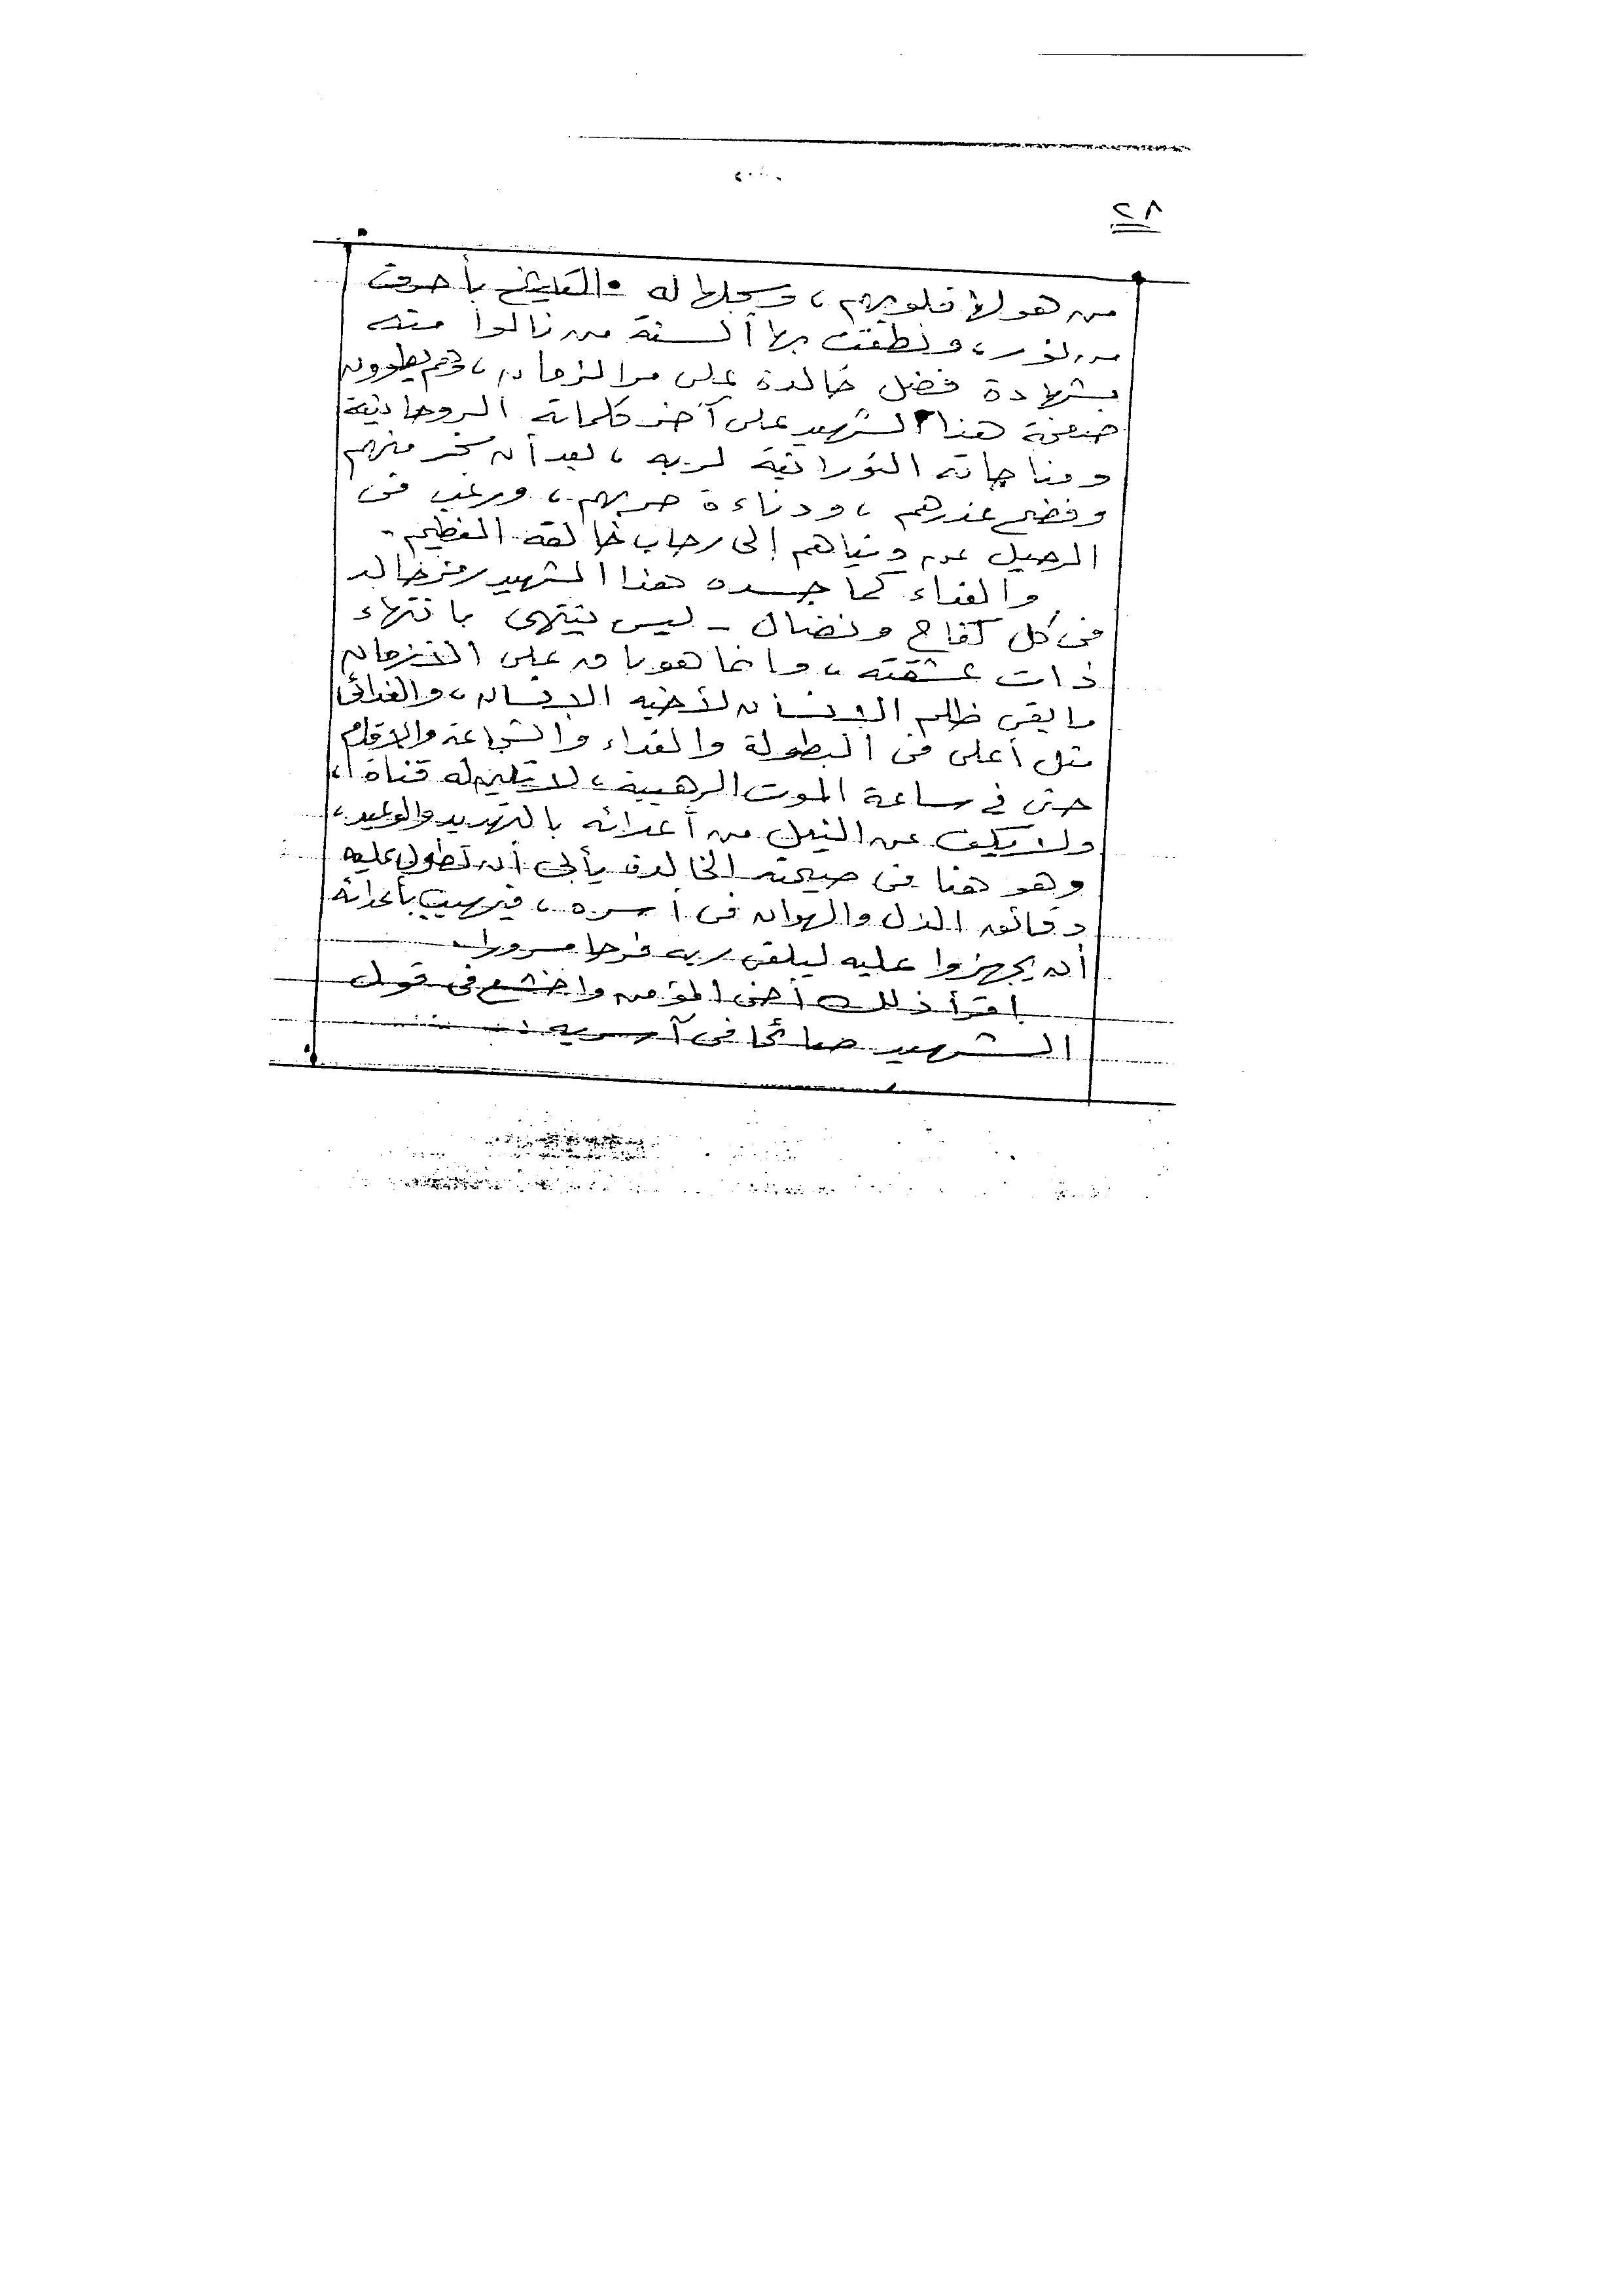 ٢٨
من هولها قلوبهم، وسجلها له التاريخ بأحرف
من نور، ونطقت بها ألسنة من نالوا منه
بشهادة فضل خالدة على مر الزمان، وهم يطوون
صفحة هذا الشهيد على آخر كلماته الروحانية
ومناجاته النورانية لربه، بعد أن سخر منهم
وفضح غدرهم، ودناءة حربهم، ورغب فى
الرحيل عن دنياهم إلى رحاب خالقه العظيم.
والفداء كما جسده هذا الشهيد رمز خالد
فى كل كفاح ونضال - ليس ينتهى بانتهاء
ذات عشقته، وإنما هو باق على الأزمان
ما بقى ظلم الإنسان لأخيه الإنسان، والفدائى
مثل أعلى فى البطولة والفداء والشجاعة والإقدام
حتى في ساعة الموت الرهيبة، لا تلين له قناة،
ولا يكف عن النيل من أعدائه بالتهديد والوعيد،
وهو هنا فى صيحته الخالدة يأبى أن تطول عليه
دقائق الذل والهوان فى أسره، فيهيب بأعدائه
أن يجهزوا عليه ليلقى ربه فرحا مسرورا.
اقرأ ذلك أخى المؤمن واخشع فى قول
الشهيد صائحا فى آسريه :